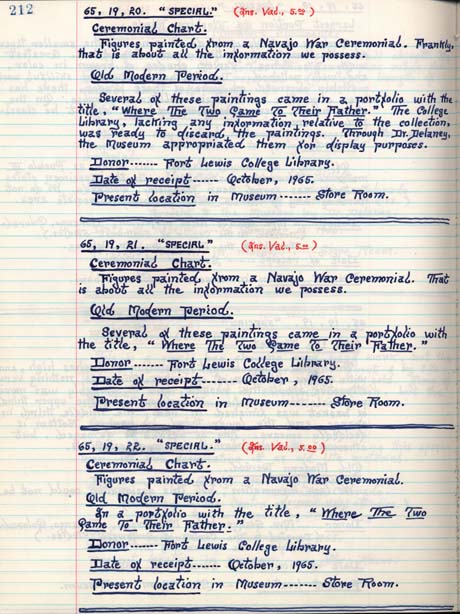 212
65, 19, 20. "SPECIAL." (Ins. Val., 5.00)
Ceremonial Chart.
Figures painted from a Navajo War Ceremonial. Frankly,
that is about all the information we possess.
Old Modern Period.
Several of these paintings came in a portfolio with the
title, "Where The Two Came To Their Father." The College
Library, lacking any information relative to the collection,
was ready to discard the paintings. Through Dr. Delaney,
the Museum appropriated them for display purposes.
Donor----- Fort Lewis College Library.
Date of receipt------ October, 1965.
Present location in Museum------- Store Room.
65, 19, 21. "SPECIAL" (Ins. Val., 5.00)
Ceremonial Chart.
Figures painted from a Navajo War Ceremonial. That
is about all the information we possess.
Old Modern Period.
Several of these paintings came in a portfolio with
the title, "Where The Two Came To Their Father."
Donor------- Fort Lewis College Library.
Date of receipt------- October, 1965.
Present location in Museum------- Store Room.
65, 19, 22. "SPECIAL." (Ins. Val., 5.00)
Ceremonial Chart.
Figures painted from a Navajo War Ceremonial.
Old Modern Period.
In a portfolio with the title, "Where The Two
Came To Their Father."
Donor------- Fort Lewis College Library.
Date of receipt------- October, 1965.
Present location in Museum------- Store Room.